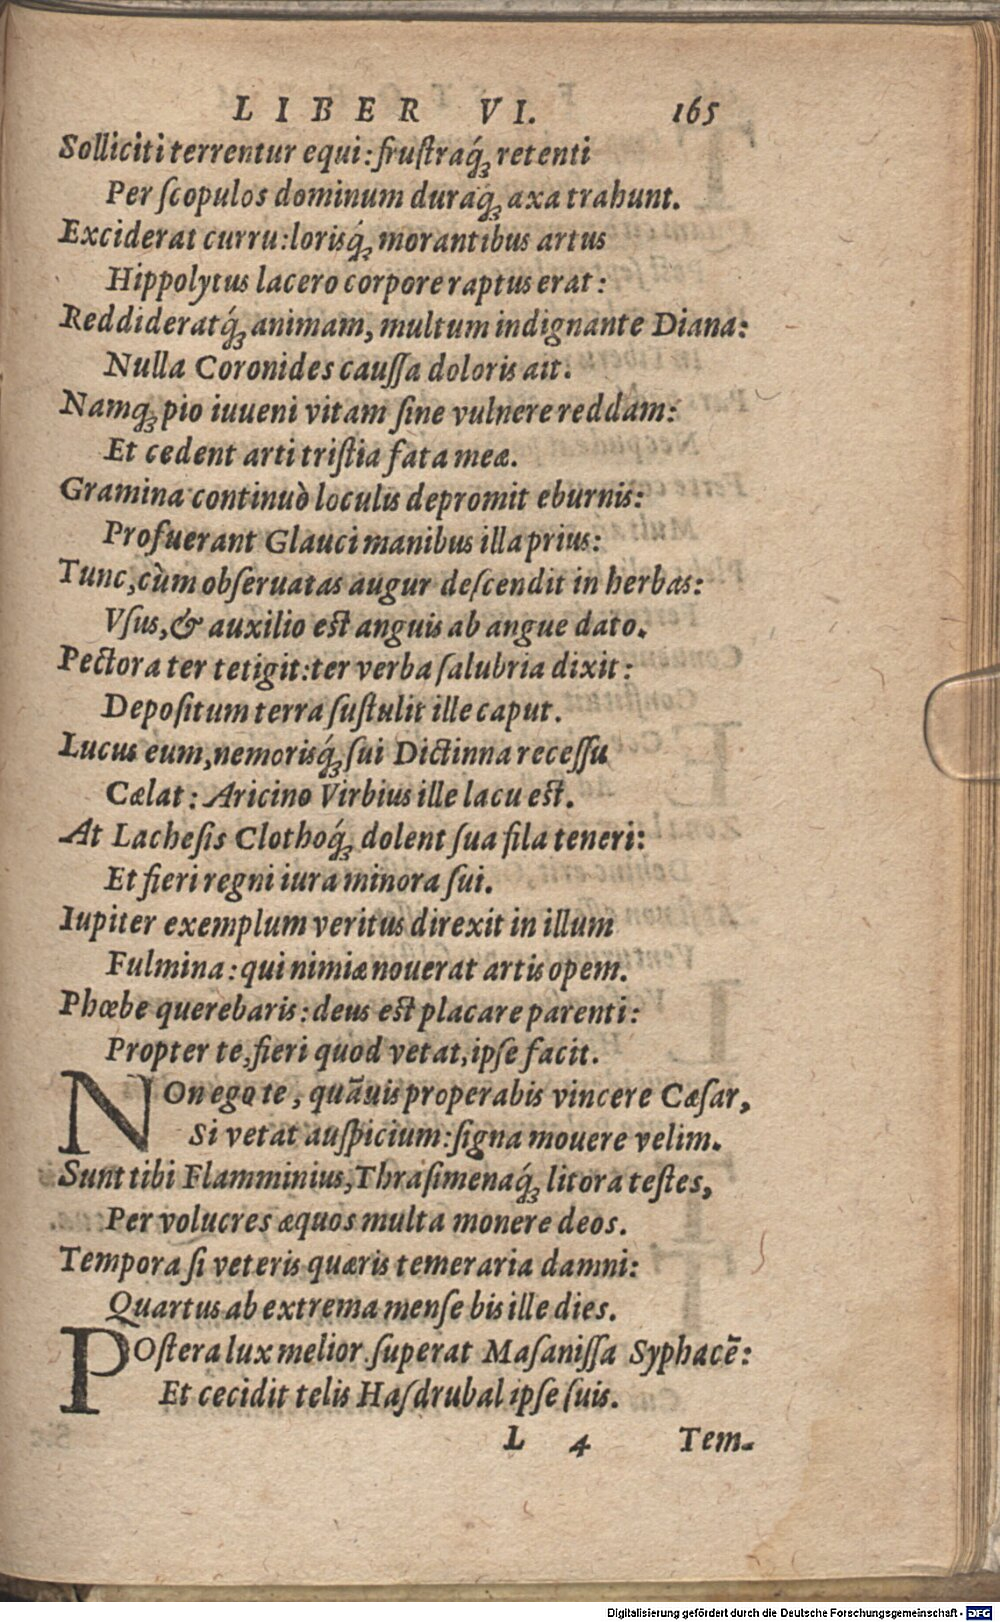 LIBER VI. 165
Solliciti terrentur equi: frustraq́ꝫ retenti
Per ſcopulos dominum duraq́ꝫ axa trahunt.
Exciderat curru: lorisq́ꝫ morantibus artus
Hippolytus lacero corpore raptus erat:
Reddideratq́ꝫ animam, multum indignante Diana:
Nulla Coronides cauſſa doloris ait.
Namqꝫ pio iuueni vitam ſine vulnere reddam:
Et cedent arti triſtia fata meæ.
Gramina continuò loculis depromit eburnis:
Profuerant Glauci manibus illa prius:
Tunc, cùm obſeruatas augur deſcendit in herbas:
Vſus, & auxilio est anguis ab angue dato.
Pectora ter tetigit: ter verba ſalubria dixit:
Depoſitum terra ſuſtulit ille caput.
Lucus eum, nemorisq́ꝫ ſui Dictinna receſſu
Cælat: Aricino Virbius ille lacu est.
At Lacheſis Clothoq́ꝫ dolent ſua fila teneri:
Et fieri regni iura minora ſui.
Iupiter exemplum veritus direxit in illum
Fulmina: qui nimiæ nouerat artis opem.
Phœbe querebaris: deus est placare parenti:
Propter te, fieri quod vetat, ipſe facit.
NOn ego te, quāuis properabis vincere Cæſar,
Si vetat auſpicium: ſigna mouere velim.
Sunt tibi Flamminius, Thraſimenaq́ꝫ litora teſtes,
Per volucres æquos multa monere deos.
Tempora ſi veteris quæris temeraria damni:
Quartus ab extrema menſe bis ille dies.
POſtera lux melior. ſuperat Maſaniſſa Syphacē:
Et cecidit telis Haſdrubal ipſe ſuis.
L 4 Tem-
Digitalisierung gefördert durch die Deutsche Forschungsgemeinschaft - DFG